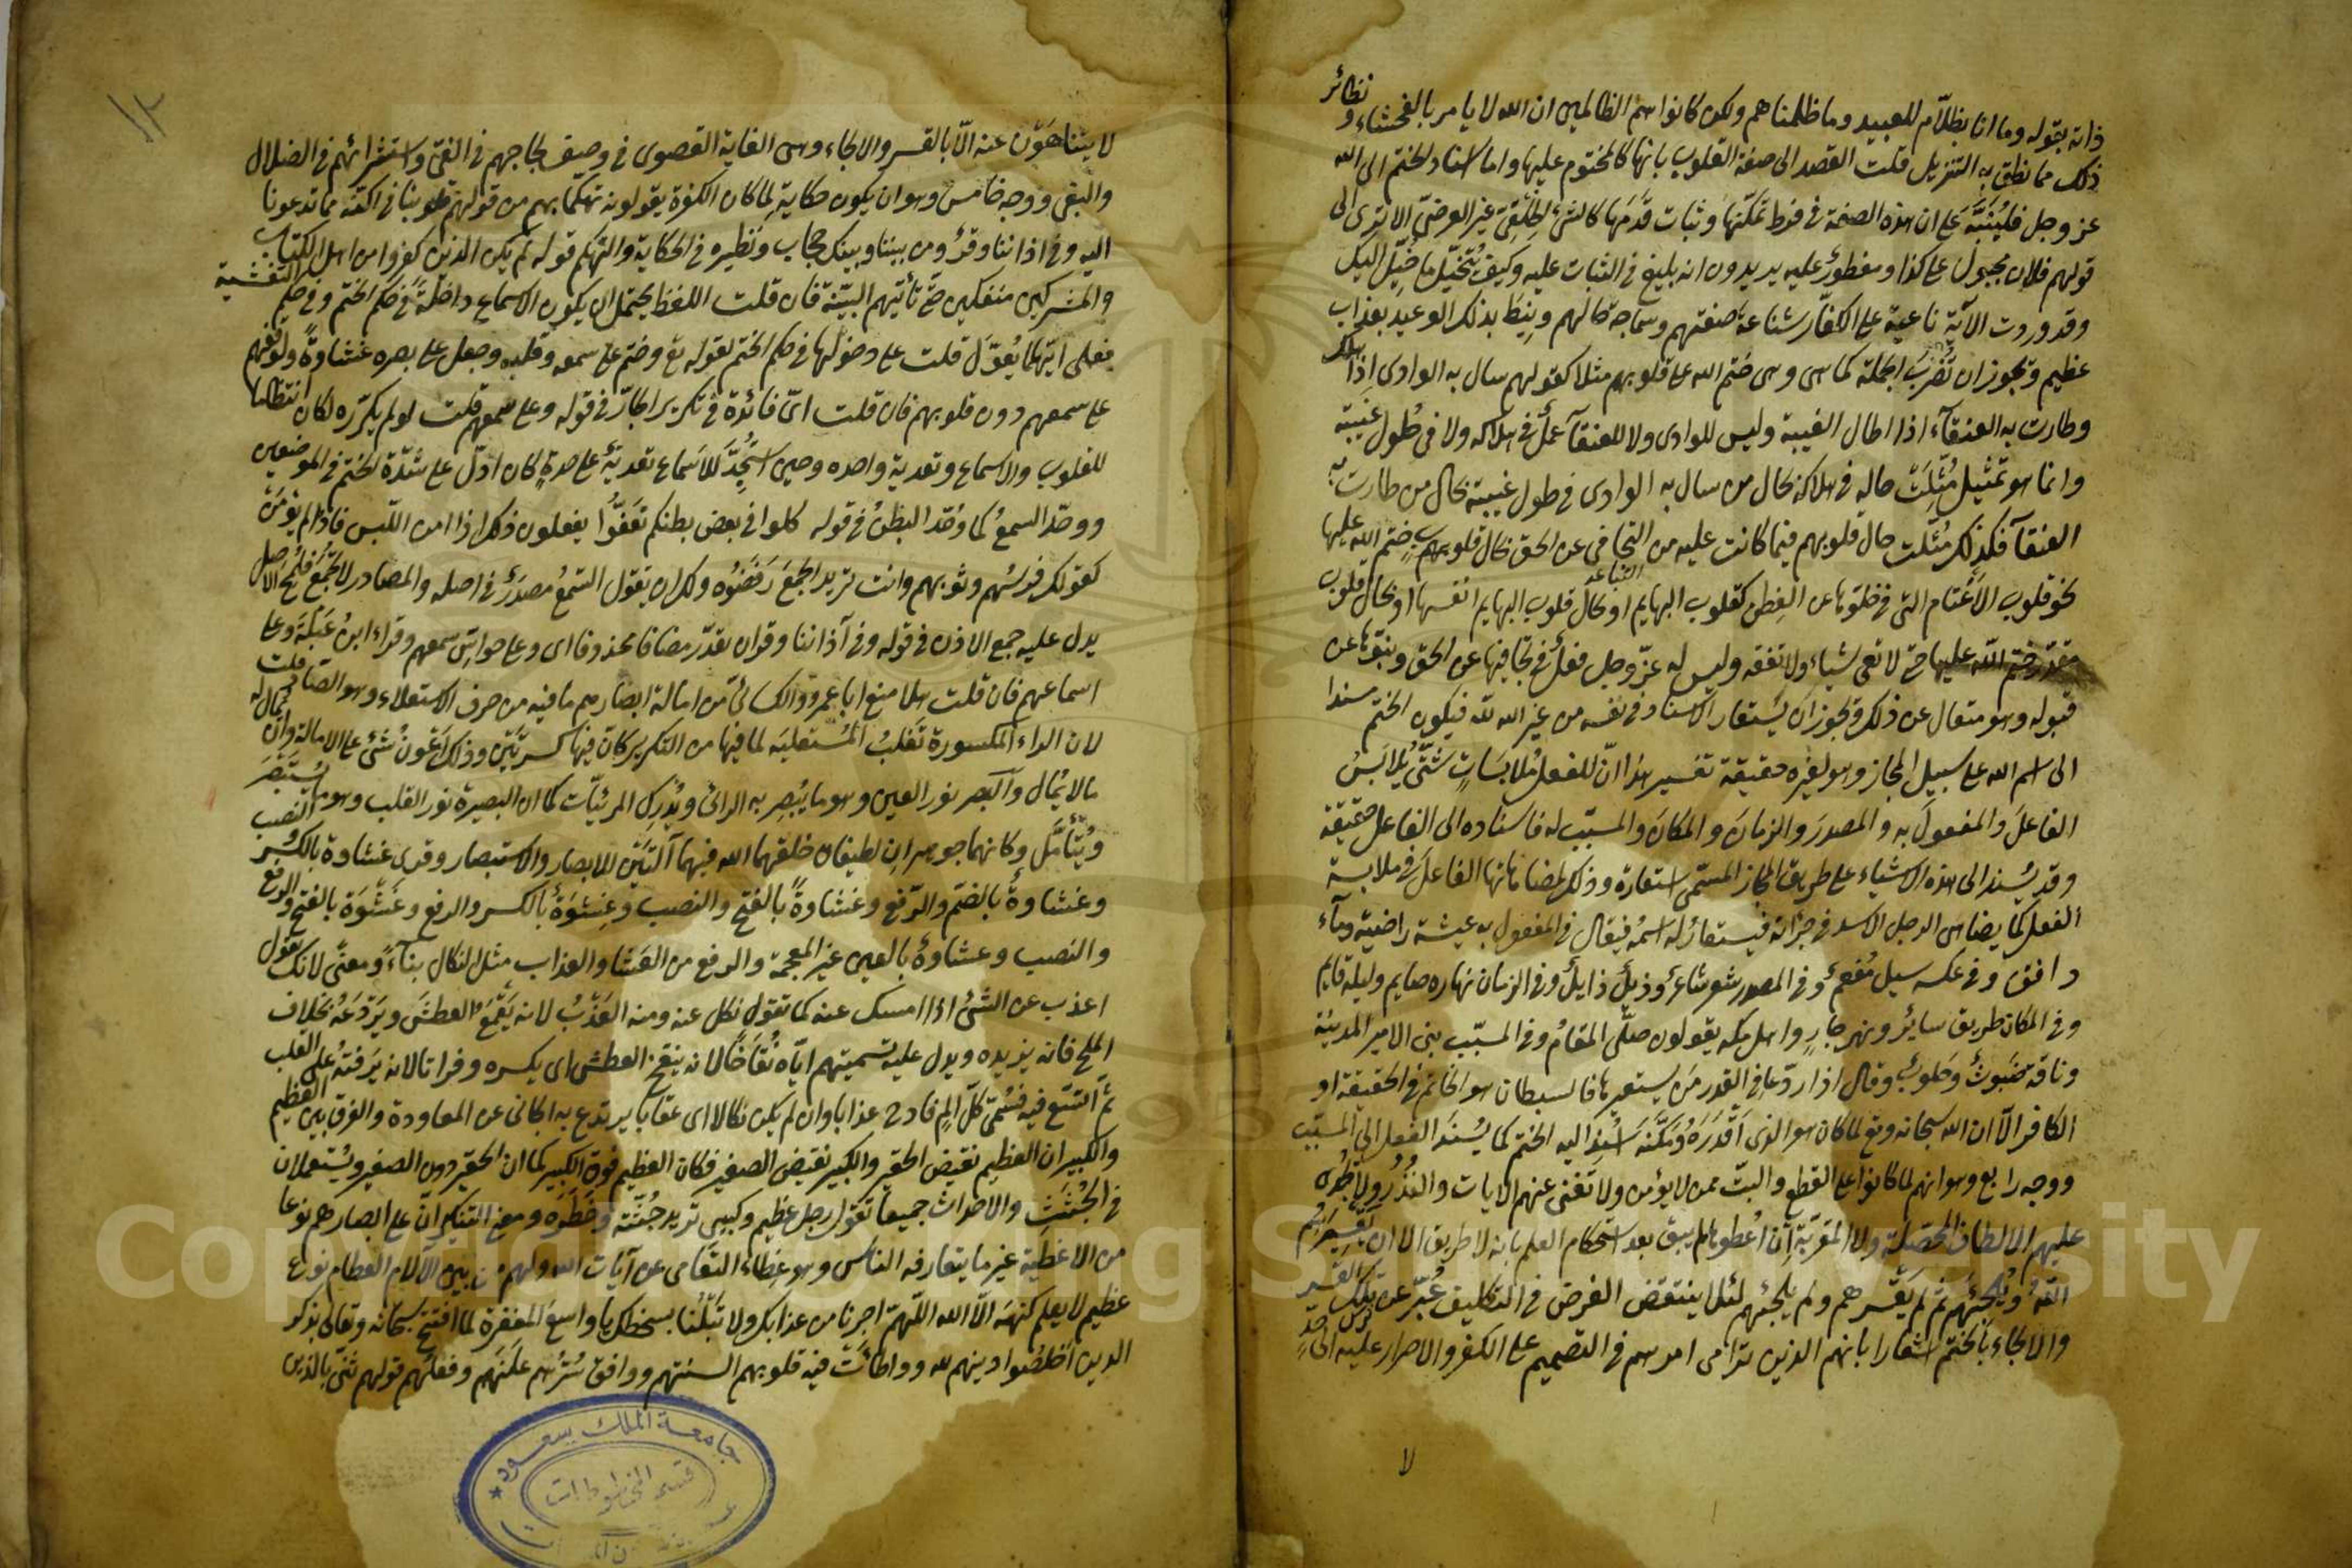 ذاته بقوله وما انا بظلاّم للعبيد وما ظلمناهم ولكن كانوا هم الظالمين ان الله لا يامر بالفحشاء ونظائر
ذلك مما نطق به التنزيل قلت القصد الى صفة القلوب بانها كالمختوم عليها واما اسناد الختم الى الله
عز وجل فليُنَبَّه على ان هذه الصفة فى فرط تمكّنها وثبات قَدَمها كالشئ الخِلْقِىّ غير العرضىّ الا ترى الى
قولهم فلان مجبول على كذا ومفطورٌ عليه يريدون انه بليغ فى الثبات عليه وكيف يُتَخيّل ما خُيّل اليك
وقد وردت الآية ناعية على الكفّار شناعة صفتهم وسماجة حالهم ونِيطَ بذلك الوعيد بعذاب
عظيم ويجوز ان تُضْرَبَ الجملة كما هى وهى ختم الله على قلوبهم مثلا كقولهم سال به الوادى اذا هلك
وطارت به العنقآء اذا اطال الغيبة وليس للوادى ولا للعنقآء عملٌ فى هلاكه ولا فى طُول غيبته
وانما هو تمثيل مُثِّلَتْ حاله فى هلاكه بحال من سال به الوادى فى طول غيبته بحال من طارت به
العنقآء فكذلك مُثّلت حال قلوبهم فيما كانت عليه من التجافى عن الحق بحال قلوب ختم الله عليها
نحو قلوب الأغْتام التى فى خلوّها عن الفِطَن كقلوب البهايم او بحال قلوب البهايم انفسها او بحال قلوب
مقدّر ختم الله عليها حتى لا تعى شياء ولا تفقه وليس له عزّ وجل فعلٌ فى تجافيها عن الحق ونبوّها عن
قبوله وهو متعال عن ذلك ويجوز ان يُستعار الاسناد فى نفسه من غير الله لله فيكون الختم مسندا
الى اسم الله على سبيل المجاز وهو لغيره حقيقة تفسير هذا انّ للفعل مُلابَسَاتٍ شَتَّى يُلابَسُ
الفاعلَ والمفعولَ به والمصدرَ والزمانَ والمكانَ والمسبّب له فاسناده الى الفاعل حقيقة
وقد يُسند الى هذه الاشياء على طريق المجاز المسمّى استعارة وذلك لمضاهاتها الفاعلَ فى ملابسة
الفعل كما يضاهى الرجل الاسد فى جرائته فيستعار له اسمُه فيقال فى المفعول به عيشة راضية ومآء
دافق وفى عكسه سيل مُفعم وفى المصدر شعر شاعرٌ وذَيلٌ ذايلٌ وفى الزمان نهاره صايم وليله قايم
وفى المكان طريق سائر ونهر جارٍ واهل مكه يقولون صلّى المقامُ وفى المسبّب بنى الامير المدينة
وناقة ضبوثٌ وحلوبٌ وقال اذا ردّ عافى القدر مَن يستعيرها فالشيطان هو الخاتم فى الحقيقة او
الكافر الاّ ان الله سبحانه وتع لما كان هو الذى اَقْدَرَهُ ومكّنَه اُسْنِد اليه الختم كما يُسْنَد الفعل الى المسبّب
ووجه رابع وهو انهم لما كانوا على القطع والبتّ ممن لا يؤمن ولا تغنى عنهم الايات والنُّذُرُ ولا تُجدى
عليهم الالطاف المحصّلة ولا المقرّبة ان اُعْطوها لم يبق بعد استحكام العلم بانه لا طريق الا ان يَقْسِرَهُم
اللهُ ويُلجئَهم ثم لم يقسرهم ولم يلجئهم لئلا ينتقض الغرض فى التكليف عُبّر عن ترك القسر
والالجاء بالختم اشعارا بانهم الذين ترامى امرهم فى التصميم على الكفر والاصرار عليه الى حدٍّ
لا
لا يتناهَوْن عنه الاّ بالقسر والالجاء وهى الغاية القصوى فى وصف لجاجهم فى الغىّ واستشرائهم فى الضلال
والبغى ووجه خامس وهو ان يكون حكايةً لِما كان الكفرة يقولونه تهكّما بهم من قولهم قلوبنا فى اكنّة مما تدعونا
اليه وفى اذاننا وقرٌ ومن بيننا وبينك حجاب ونظيره فى الحكاية والتهكم قوله لم يكن الذين كفروا من اهل الكتاب
والمشركين منفكّين حتى تأتيهم البيّنة فان قلت اللفظ يحتمل ان يكون الاسماع داخلةً فى حكم الختم وفى حكم التغشية
فعلى ايّهما يُعوَّل قلت على دخولها فى حكم الختم لقوله تع وختم على سمعه وقلبه وجعل على بصره غشاوةً ولوقفهم
على سمعهم دون قلوبهم فان قلت اىّ فائدة فى تكرير الجارّ فى قوله وعلى سمعهم قلت لو لم يكرّره لكان انتظاما
للقلوب والاسماع وتعدية واحده وحين استُجِدّ للاَسماع تعديةٌ على حدةٍ كان ادلّ على شدّة الختم فى الموضعين
ووحّد السمعَ كما وُحّد البطنُ فى قوله كلوا فى بعض بطنكم تعَفّوُا يفعلون ذلك اذا امن اللّبس فاذا لم يؤمَنْ
كقولك فرسُهم وثوبهم وانت تريد الجمعَ رَفَضُوُه ولك ان تقول السَّمعُ مصدرٌ فى اصله والمصادر لا تُجْمَعُ فَلُمِحَ الاصل
يدل عليه جمع الاذن فى قوله وفى آذاننا وقر وان تقدّر مضافا محذوفا اى وعلى حواسّ سمعهم وقراء ابنُ عَبْلَةَ وعلى
اسماعهم فان قلت هلا منع ابا عمرو والكسائىّ من امالة ابصارهم ما فيه من حرف الاستعلاء وهو الصاد قلت
لان الراء المكسورة تغلبُ المُستعليَه لما فيها من التكرير كانّ فيها كسرتَيْنِ وذلك اَعْونُ شئ على الامالة وان يُمال له
مالا يُمال والبَصر نور العين وهو ما يُبْصِر به الرائى ويُدْرِك المرئيّات كما ان البصيرة نور القلب وهو ما به يُسْتَبْصَر
ويُتأمَّل وكانهما جوهران لطيفان خلقهما الله فيهما آلتَيْن للابصار والاستبصار وقرى غشاوة بالكَسْر والنصب
وغشاوةٌ بالضمّ والرّفع وغشاوةً بالفتح والنصب وغِشوَةٌ بالكسر والرفع وغَشْوَة بالفتح والرفع
والنصب وعشاوةٌ بالعين غير المعجمة والرفع من العَشا والعذاب مثل النكال بناءً ومعنًى لانك تقول
اعذب عن الشئ اذا امسك عنه كما تقول نكل عنه ومنه العَذْبُ لانه يَقْمَعُ العطشَ ويَرْدَعُهُ بخلاف
الملح فانه يزيده ويدل عليه تسميتهم ايّاه نُقاخًا لانه ينقخ العطش اى يكسره وفراتا لانه يَرفتهُ على القلب
ثم اتّسّع فيه فسُمّى كلّ المٍ فادحٍ عذابا وان لم يكن نكالا اى عقابا يرتدع به الجانى عن المعاودة والفرق بين العظيم
والكبير ان العظيم نقيض الحقير والكبير نقيض الصغير فكان العظيم فوق الكبير كما ان الحقير دون الصغير ويُستعملان
فى الجُثَثِ والاحداث جميعا تقول رجل عظيم وكبير تريد جُثّته وخَطَرَه ومعنى التنكير انّ على ابصارهم نوعا
من الاغطية غير ما يتعارفه الناس وهو غِطاء التّعامى عن آيات الله ولهم من بين الآلام العظام نوع
عظيم لا يعلم كنهَه الاّ الله اللّهمّ اجرنا من عذابك ولا تَبْلُنا بسخطك يا واسع المغفرة لما افتتح سبحانه وتعالى بذكر
الذين اخلصُوا دينهم لله وواطأتْ فيه قلوبهم السنتهم ووافق سُرّهُم علَنَهم وفعلُهم قولهم ثنّى بالذين
جامعة الملك سعود
قسم المخطوطات
Copyright © King Saud University